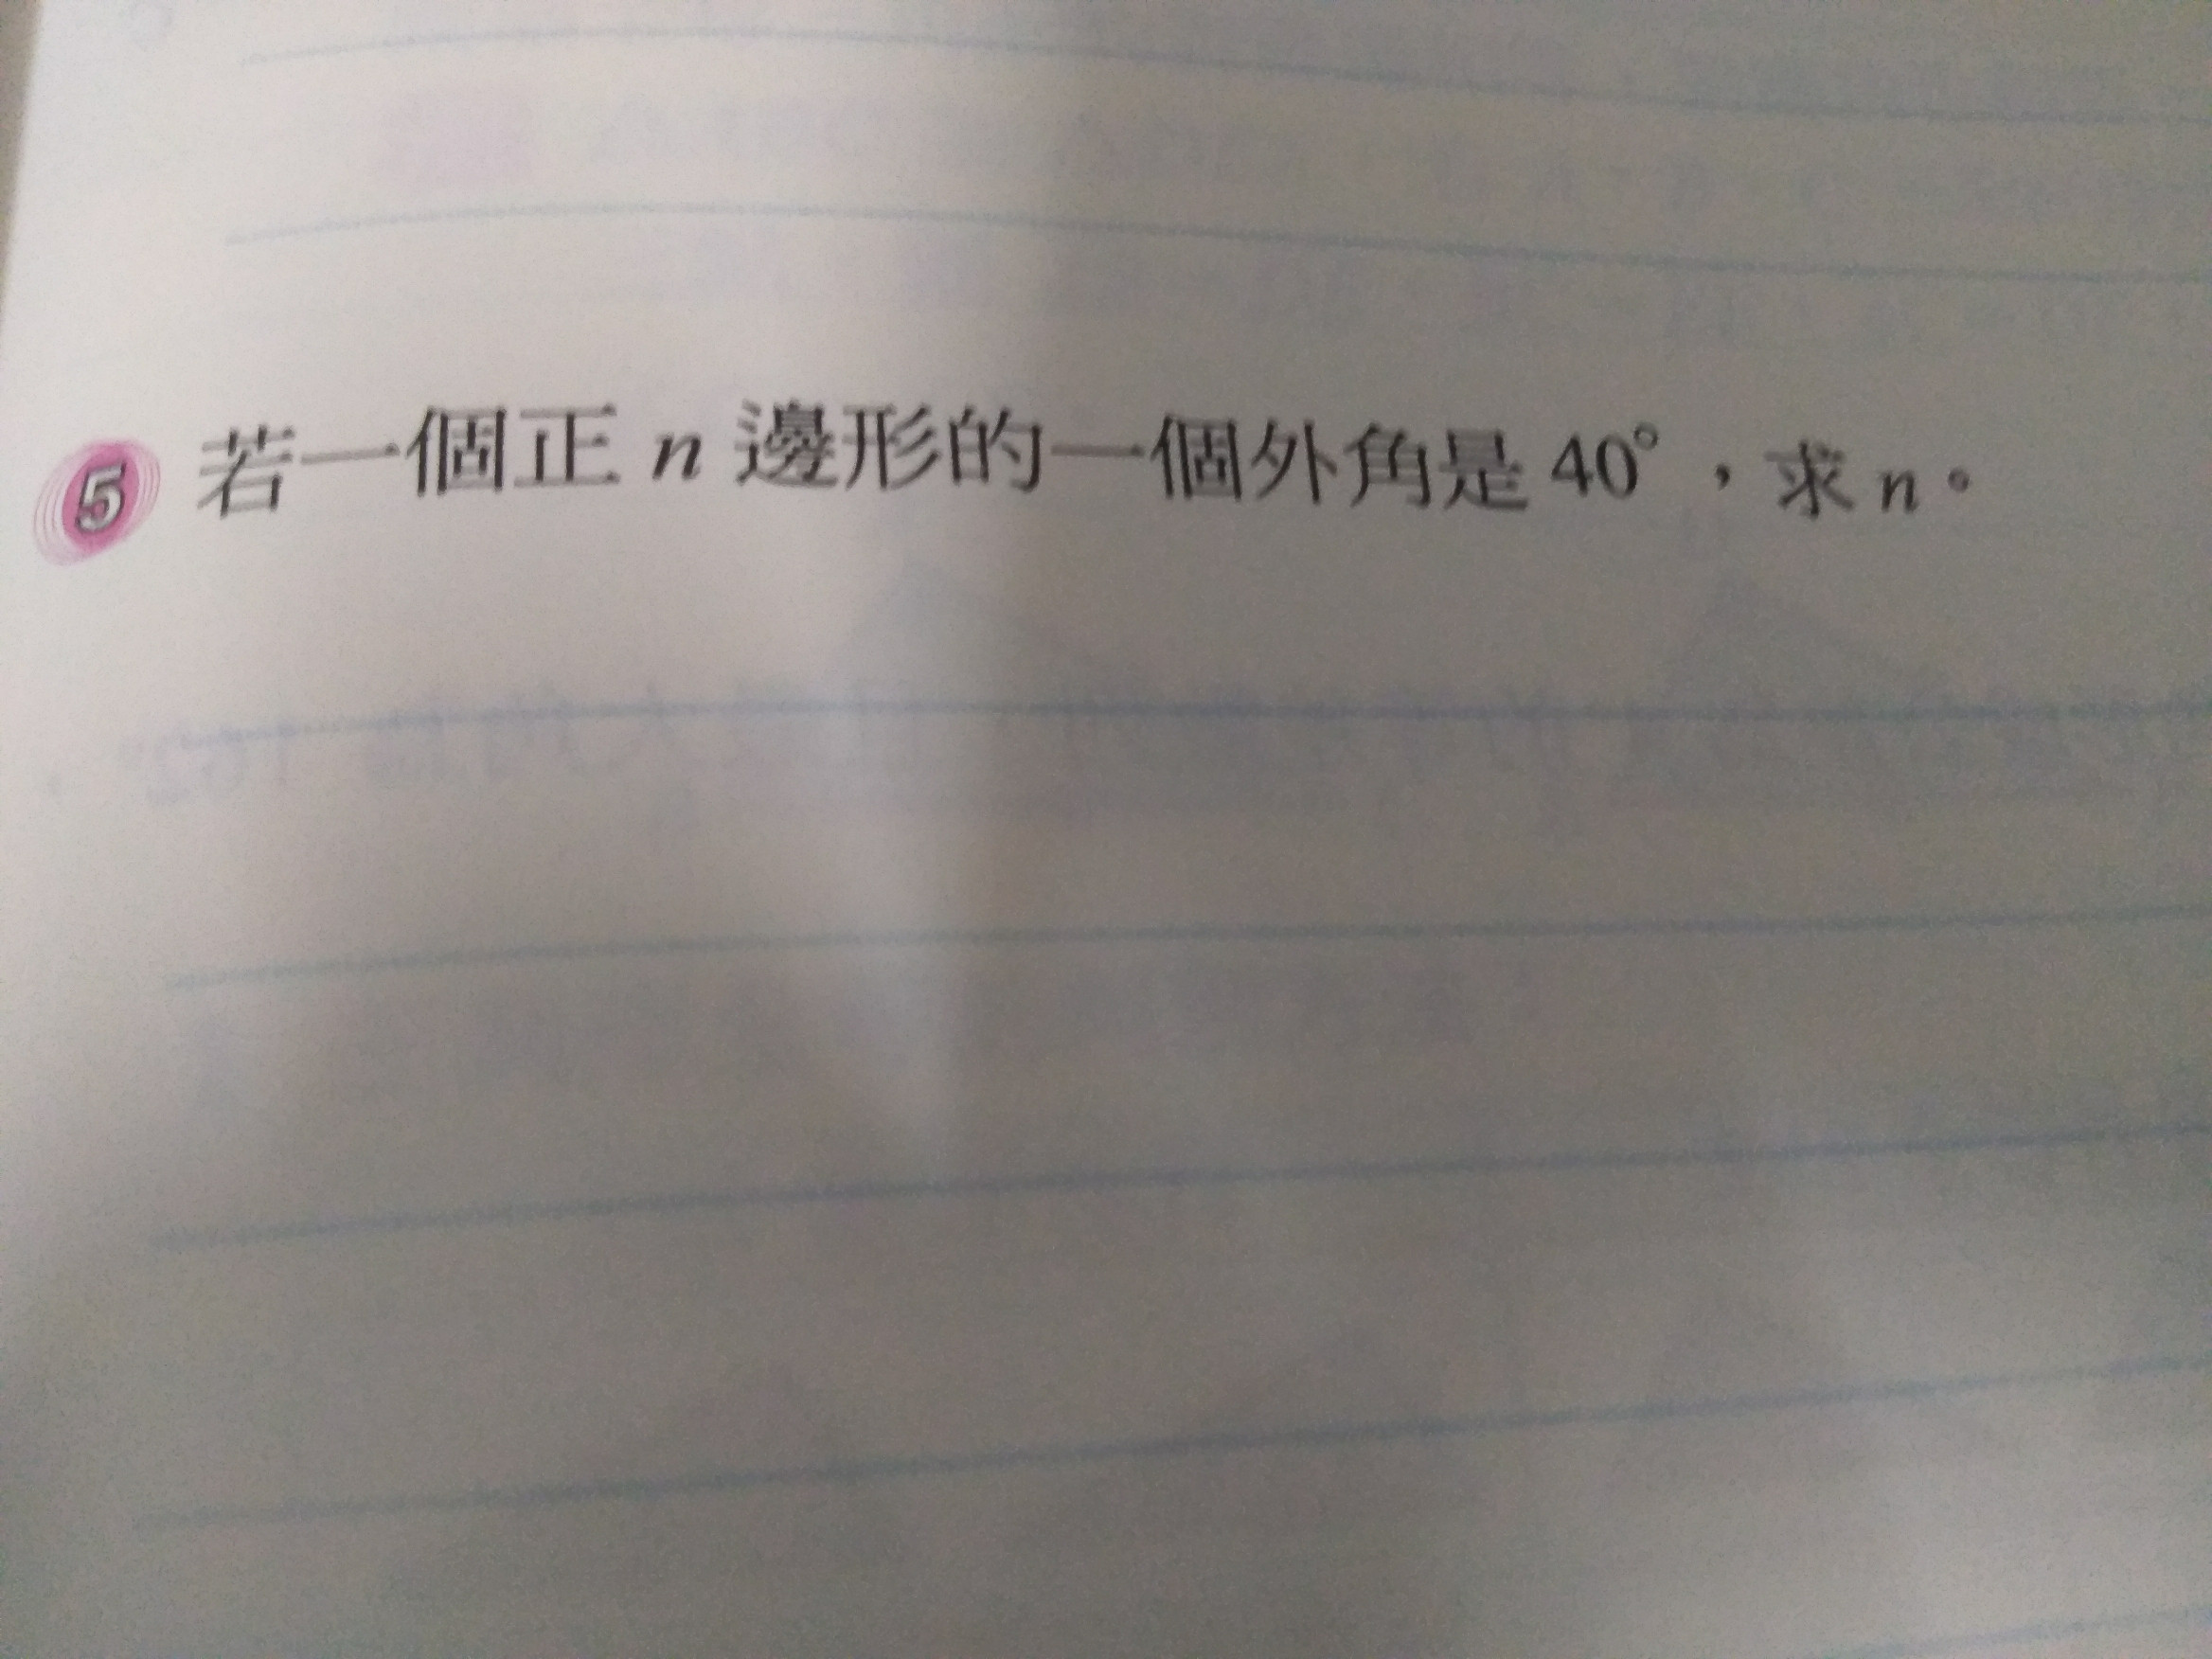 5 若一個正 n 邊形的一個外角是 40°，求 n。